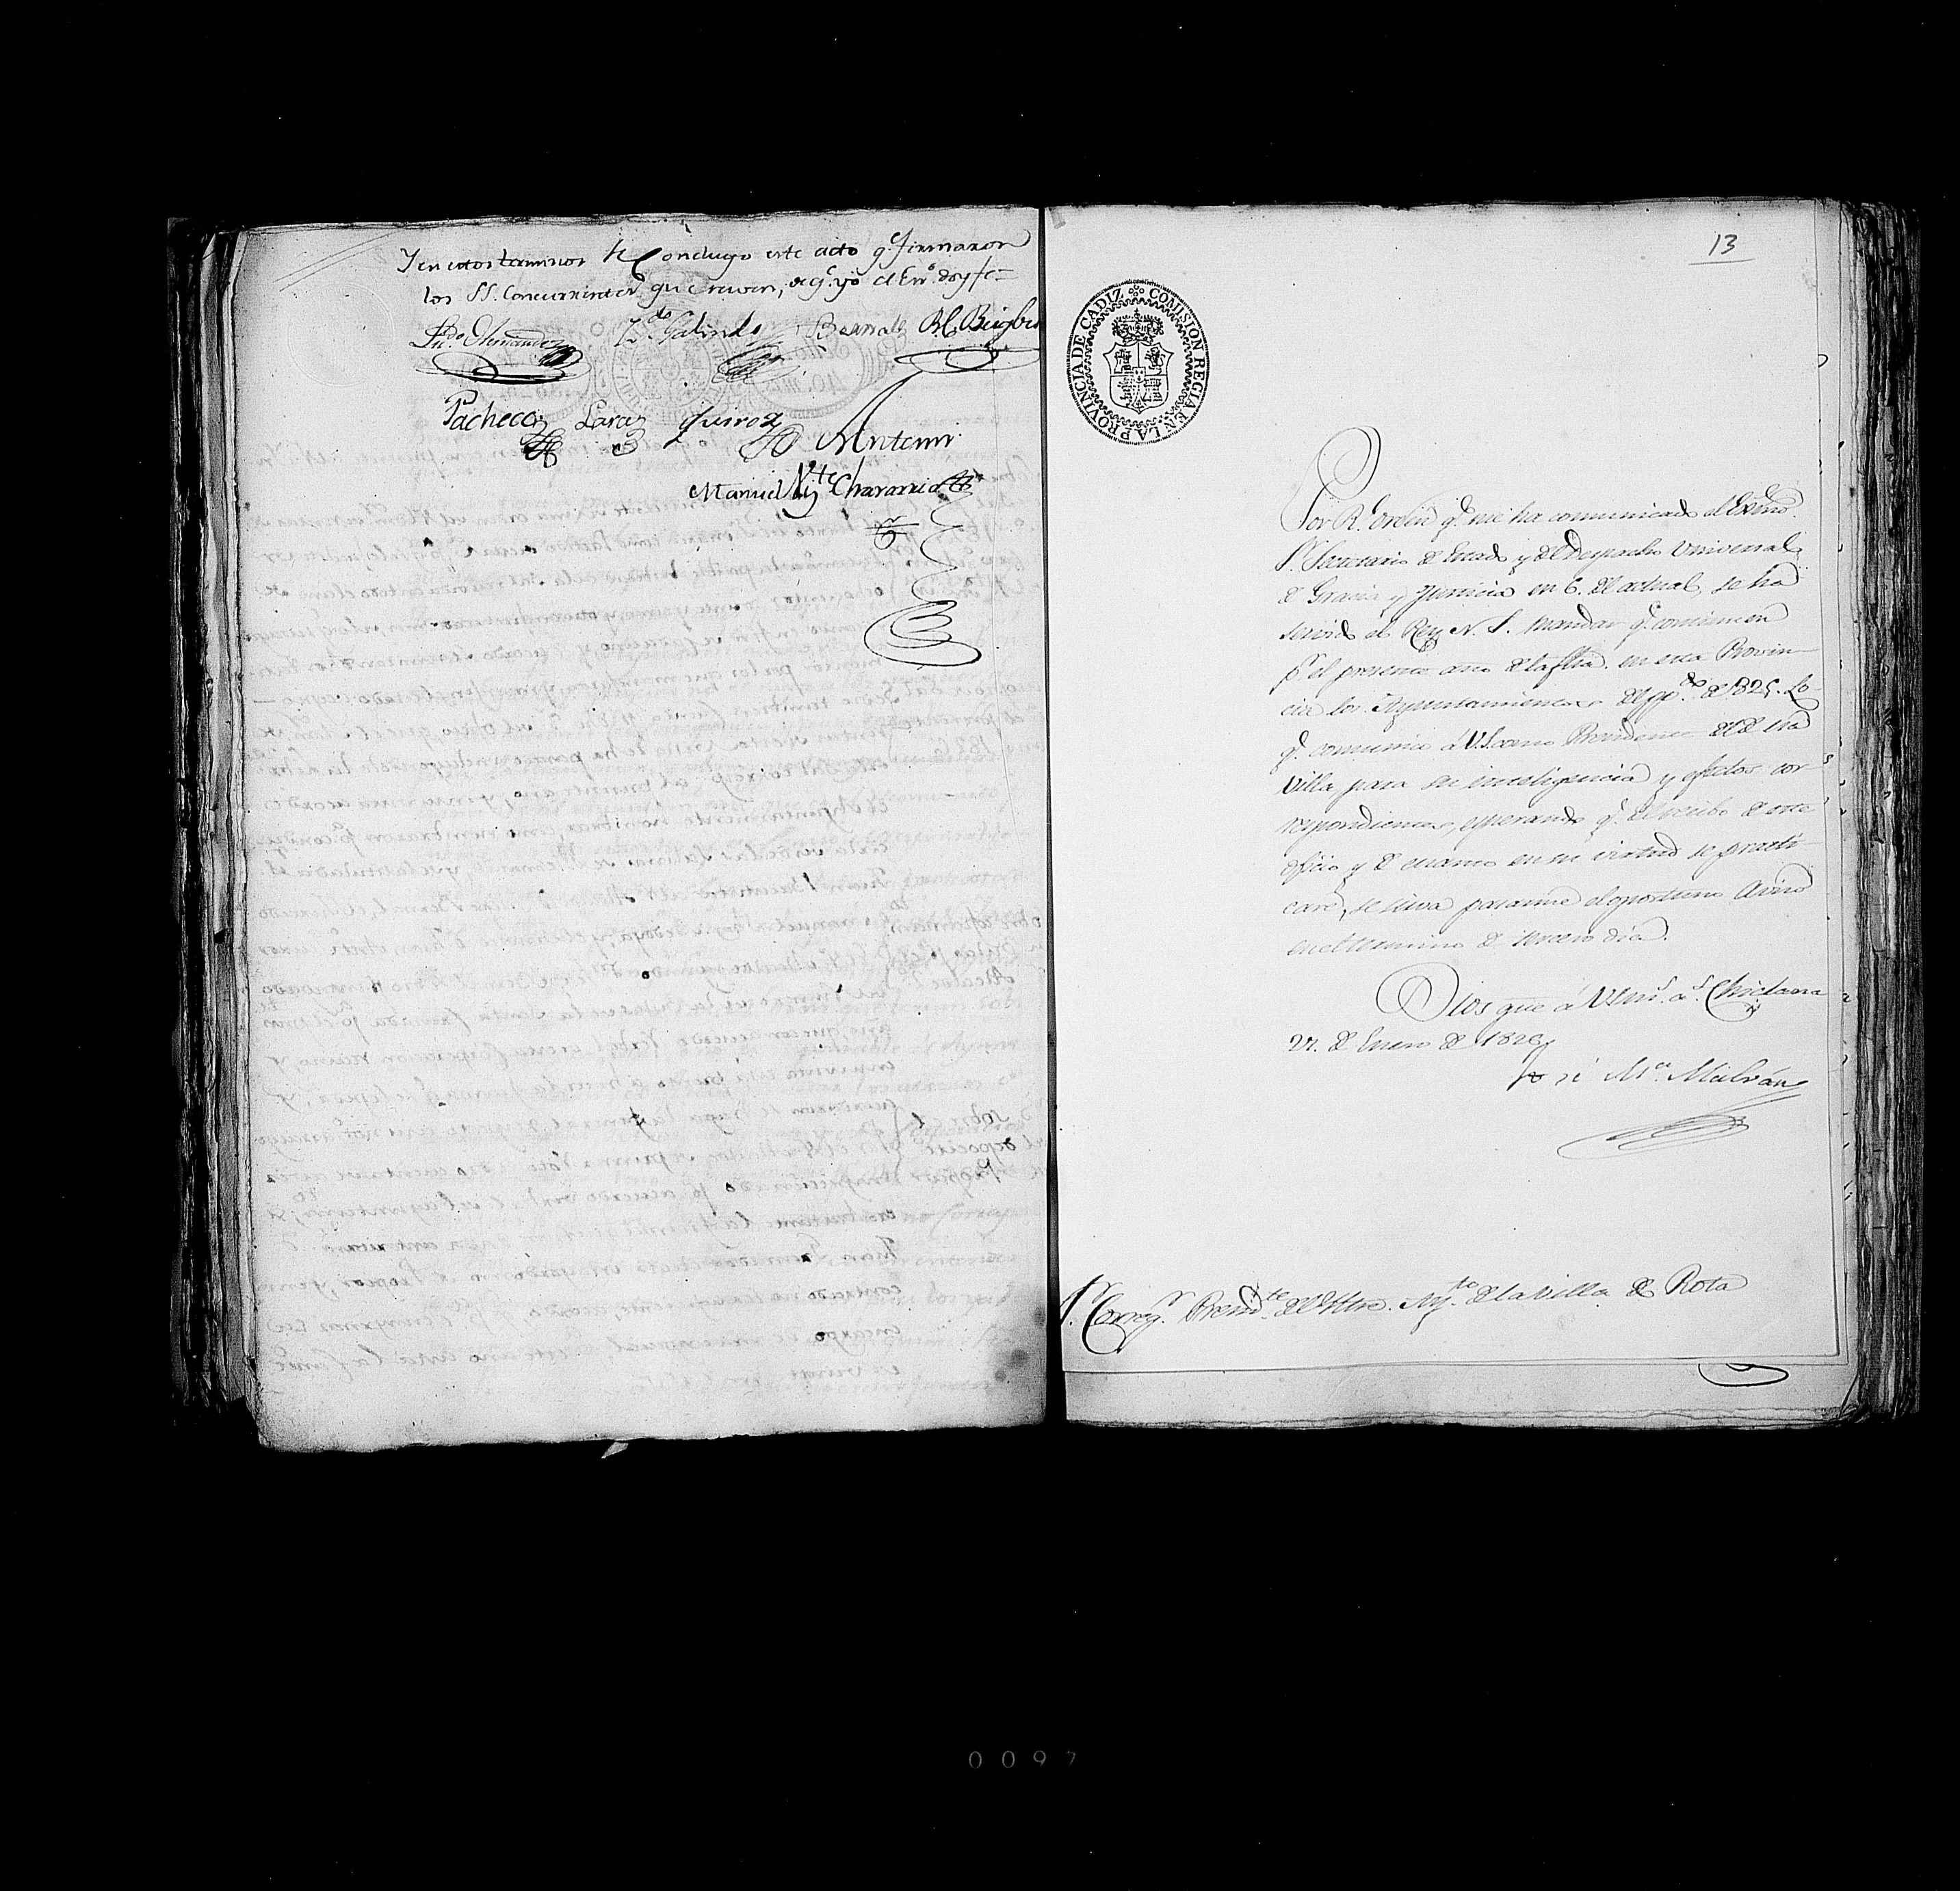 Y en estos terminos se Concluyo este acto q.e firmaron
los SS. Concurrentes que saven, de q.e yo el Ess.no doy fe=
Ln.do Hernandez Galindo Bernal
Pacheco Lara Quiros Antemi
Manuel
13
COMISION REGIA EN LA PROVINCIA DE CADIZ
Por R.l orden q.e me ha comunicado el Exmo.
S.r Secretario de Estado y del Despacho Universal
de Gracia y Justicia en 6. del actual, se ha
servido el Rey N. S. mandar q.e continuen
p.r el presente año de la fha. en esta Provin-
cia los Ayuntamientos del pp.do de 1825. Lo
q.e comunico á V.S. como Presidente del de esa
Villa para su inteligencia y efectos cor-
respondientes, esperando q.e del recibo de este
oficio y de cuanto en su virtud se practi-
care, se sirva pasarme el oportuno Aviso
en el termino de tercero dia.
Dios gue á V.S. m.s a.s Chiclana
27. de Enero de 1826
José M.a Malvár
S.r Correg.r Presid.te del Iltre. Ay.to de la Villa de Rota
0097